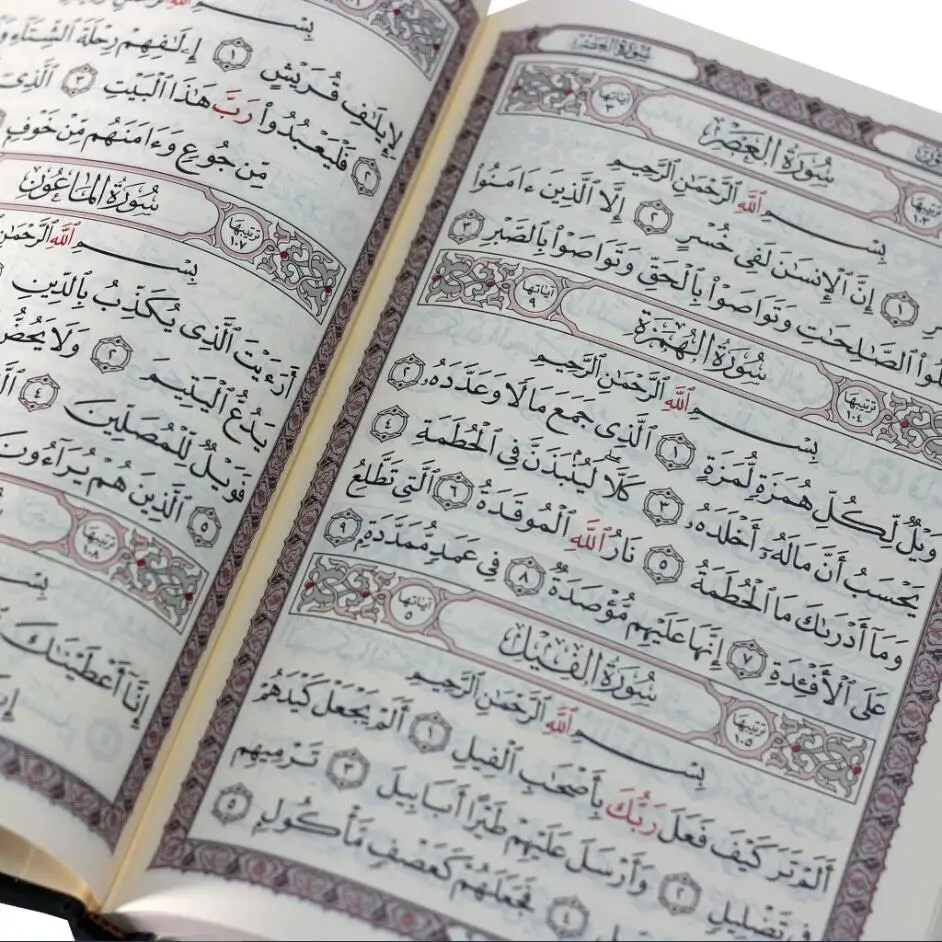 سُورَةُ العَصْرِ
ترتيبها ١٠٣ سُورَةُ العَصْرِ آياتها ٣
بِسْمِ ٱللَّهِ ٱلرَّحْمَٰنِ ٱلرَّحِيمِ
١ إِنَّ ٱلْإِنسَٰنَ لَفِى خُسْرٍ ٢ إِلَّا ٱلَّذِينَ ءَامَنُوا۟
ٱلصَّٰلِحَٰتِ وَتَوَاصَوْا۟ بِٱلْحَقِّ وَتَوَاصَوْا۟ بِٱلصَّبْرِ ٣
ترتيبها ١٠٤ سُورَةُ الهُمَزَةِ آياتها ٩
بِسْمِ ٱللَّهِ ٱلرَّحْمَٰنِ ٱلرَّحِيمِ
وَيْلٌ لِّكُلِّ هُمَزَةٍ لُّمَزَةٍ ١ ٱلَّذِى جَمَعَ مَالًا وَعَدَّدَهُۥ ٢
يَحْسَبُ أَنَّ مَالَهُۥٓ أَخْلَدَهُۥ ٣ كَلَّا ۖ لَيُنۢبَذَنَّ فِى ٱلْحُطَمَةِ ٤
وَمَآ أَدْرَىٰكَ مَا ٱلْحُطَمَةُ ٥ نَارُ ٱللَّهِ ٱلْمُوقَدَةُ ٦ ٱلَّتِى تَطَّلِعُ
عَلَى ٱلْأَفْـِٔدَةِ ٧ إِنَّهَا عَلَيْهِم مُّؤْصَدَةٌ ٨ فِى عَمَدٍ مُّمَدَّدَةٍۭ ٩
ترتيبها ١٠٥ سُورَةُ الفِيلِ آياتها ٥
بِسْمِ ٱللَّهِ ٱلرَّحْمَٰنِ ٱلرَّحِيمِ
أَلَمْ تَرَ كَيْفَ فَعَلَ رَبُّكَ بِأَصْحَٰبِ ٱلْفِيلِ ١ أَلَمْ يَجْعَلْ كَيْدَهُمْ
فِى تَضْلِيلٍ ٢ وَأَرْسَلَ عَلَيْهِمْ طَيْرًا أَبَابِيلَ ٣ تَرْمِيهِم
٤ فَجَعَلَهُمْ كَعَصْفٍ مَّأْكُولٍۭ ٥
بِسْمِ ٱللَّهِ ٱلرَّحْمَٰنِ
لِإِيلَٰفِ قُرَيْشٍ ١ إِۦلَٰفِهِمْ رِحْلَةَ ٱلشِّتَآءِ
٢ فَلْيَعْبُدُوا۟ رَبَّ هَٰذَا ٱلْبَيْتِ ٣ ٱلَّذِىٓ
مِّن جُوعٍ وَءَامَنَهُم مِّنْ خَوْفٍۭ
ترتيبها ١٠٧ سُورَةُ المَاعُونِ
بِسْمِ ٱللَّهِ ٱلرَّحْمَٰنِ
أَرَءَيْتَ ٱلَّذِى يُكَذِّبُ بِٱلدِّينِ
يَدُعُّ ٱلْيَتِيمَ ٢ وَلَا يَحُضُّ
فَوَيْلٌ لِّلْمُصَلِّينَ ٤
٥ ٱلَّذِينَ هُمْ يُرَآءُونَ
ترتيبها ١٠٨
بِسْمِ
إِنَّآ أَعْطَيْنَٰكَ